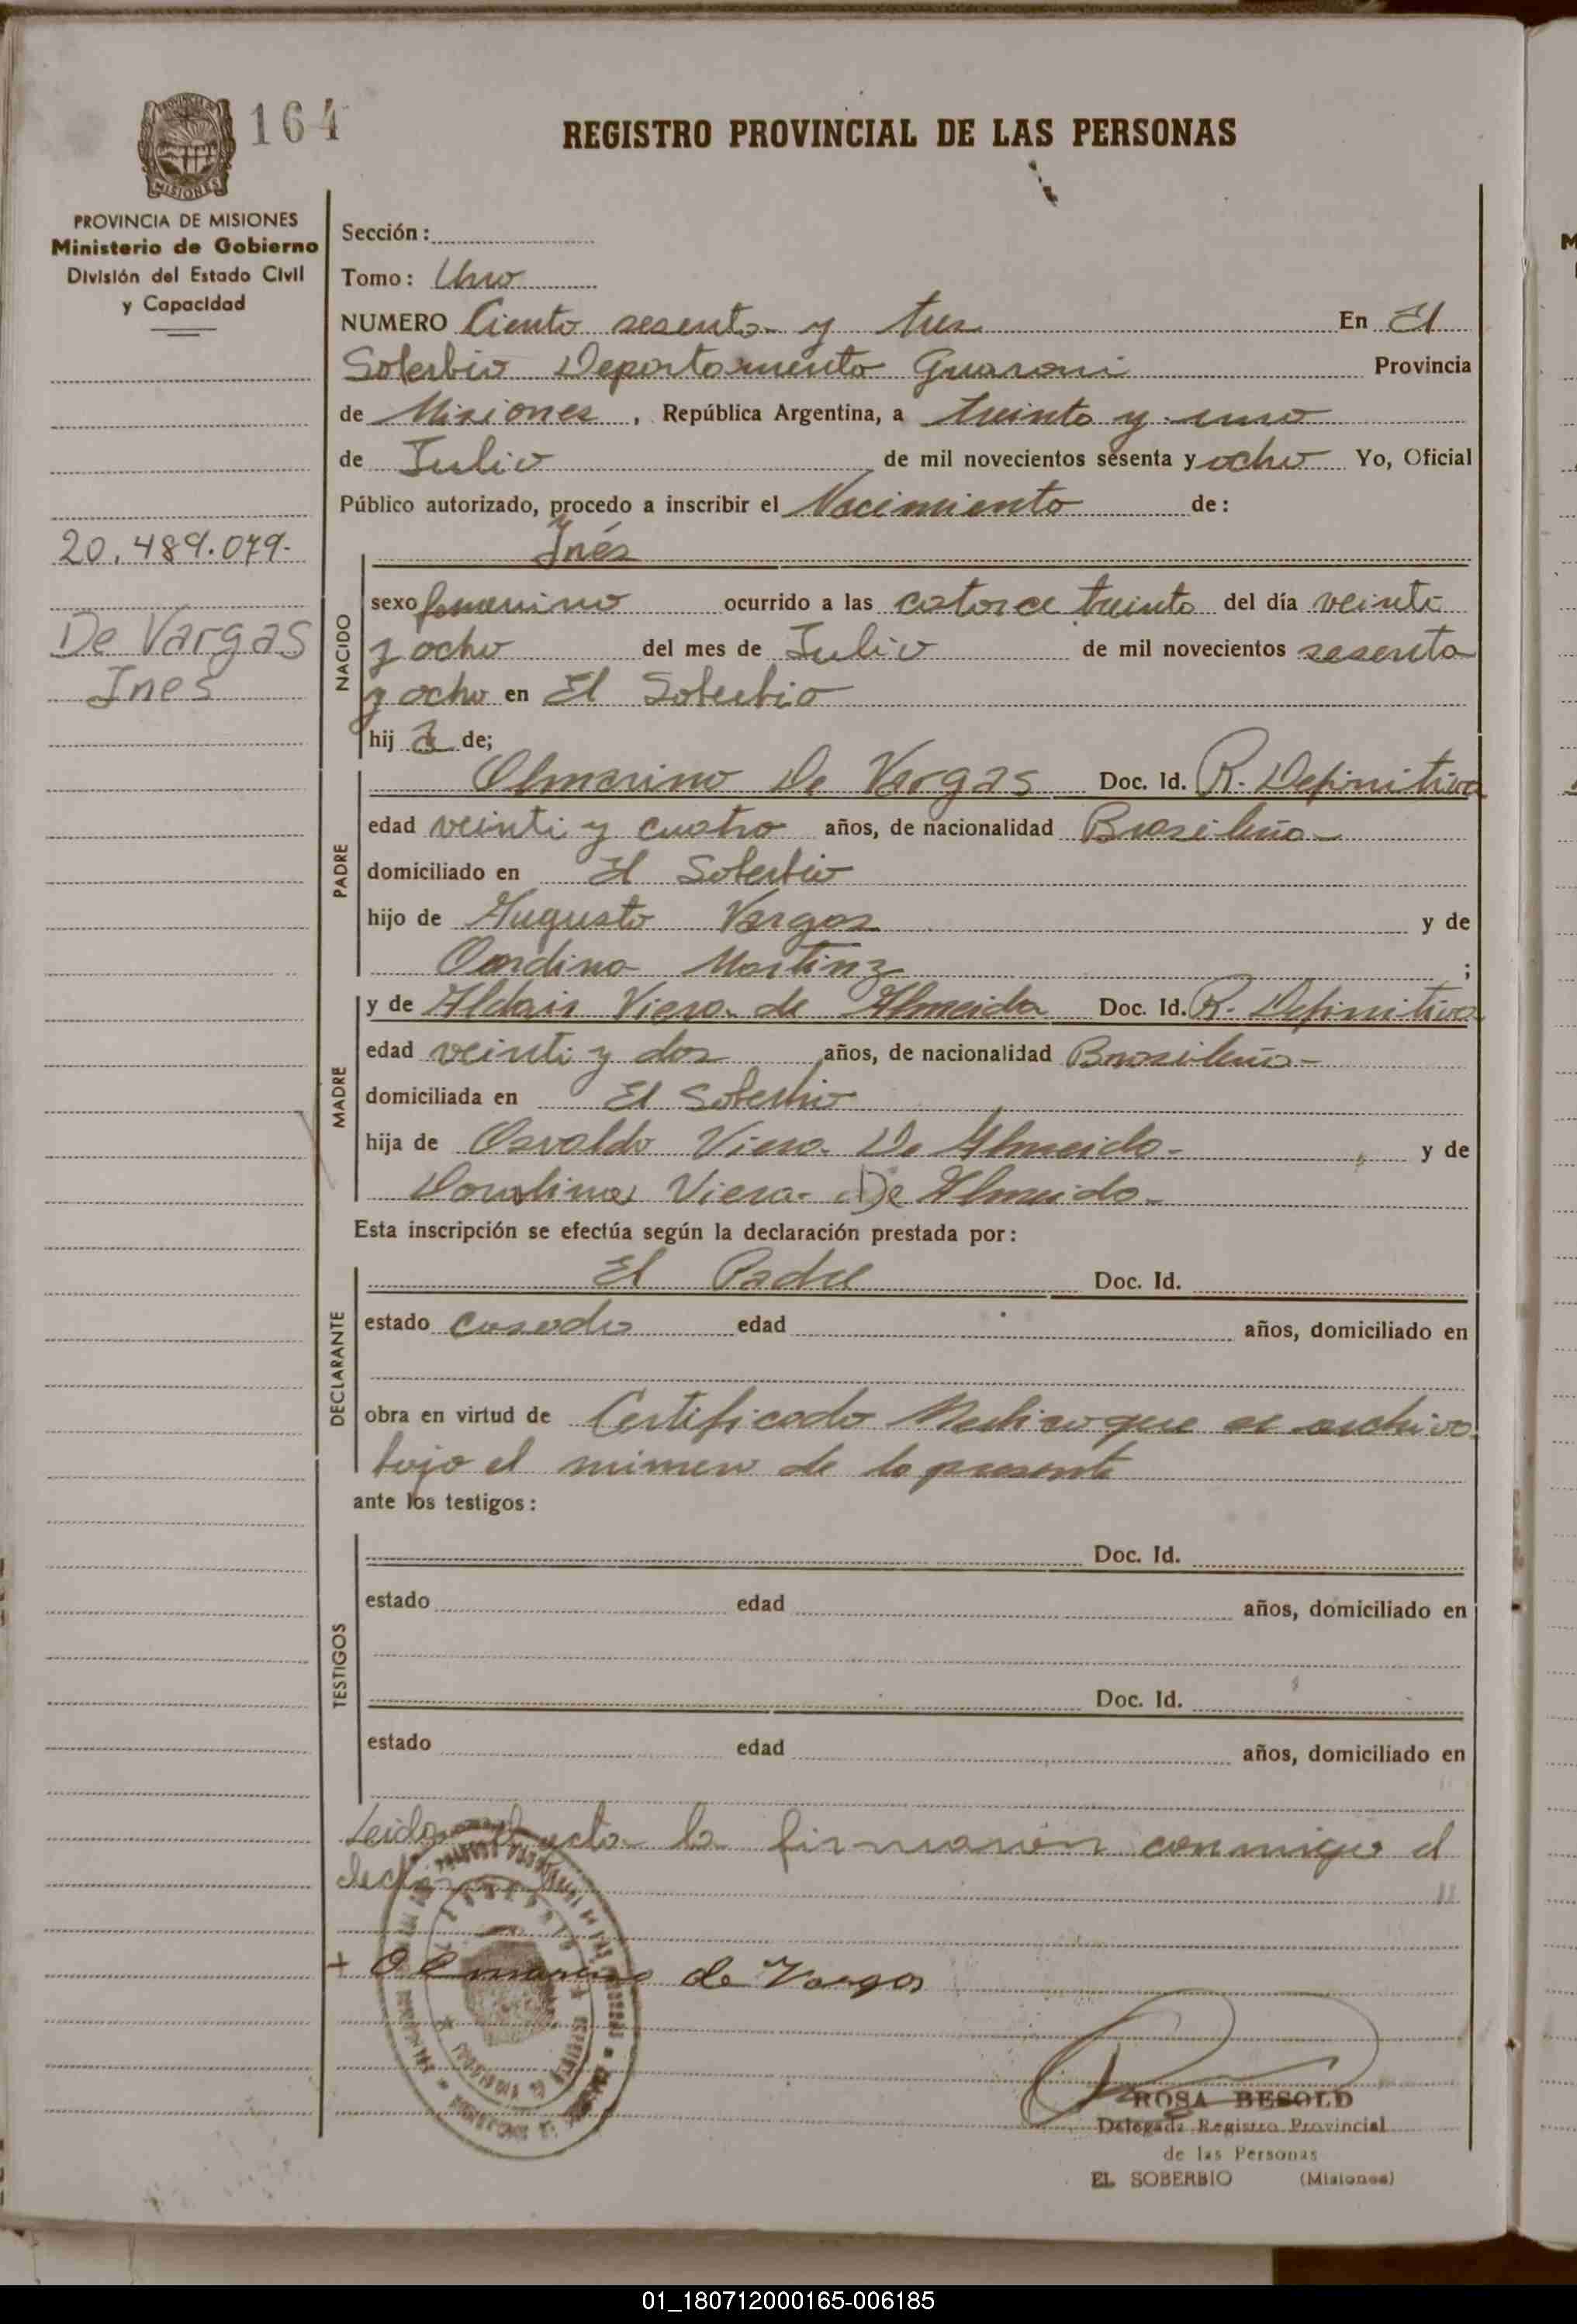 164
REGISTRO PROVINCIAL DE LAS PERSONAS
PROVINCIA DE MISIONES
Ministerio de Gobierno
División del Estado Civil
y Capacidad
20.489.079.
De Vargas
Ines
Sección:
Tomo: Uno
NUMERO Ciento sesenta y tres En El
Soberbio Departamento Guarani Provincia
de Misiones, República Argentina, a treinta y uno
de Julio de mil novecientos sesenta y ocho Yo, Oficial
Público autorizado, procedo a inscribir el Nacimiento de:
Inés
NACIDO
sexo femenino ocurrido a las catorce treinta del día veinte
y ocho del mes de Julio de mil novecientos sesenta
y ocho en El Soberbio
hij a de;
PADRE
Olmarino De Vargas Doc. Id. R. Definitiva
edad veinti y cuatro años, de nacionalidad Brasileña
domiciliado en El Soberbio
hijo de Augusto Vargas y de
Martinz ;
MADRE
y de Aldair Viera de Almeida Doc. Id. R. Definitiva
edad veinti y dos años, de nacionalidad Brasileña
domiciliada en El Soberbio
hija de Osvaldo Viera De Almeida y de
Viera De Almeida
Esta inscripción se efectúa según la declaración prestada por:
DECLARANTE
El Padre Doc. Id.
estado casado edad años, domiciliado en
obra en virtud de Certificado Medico que se archiva
bajo el número de la presente
ante los testigos:
TESTIGOS
Doc. Id.
estado edad años, domiciliado en
Doc. Id.
estado edad años, domiciliado en
Leida el acta la firmaron conmigo el
+ Olmarino de Vargas
ROSA BESOLD
Delegada Registro Provincial
de las Personas
EL SOBERBIO (Misiones)
01_180712000165-006185